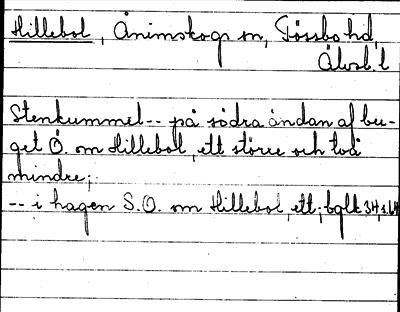 Hillebol, Ånimskogs sn, Tössbo hd,
Älvsb. l
Stenkummel -- på södra ändan af ber-
get Ö. om Hillebol, ett större och två
mindre;
-- i hagen S.O. om Hillebol, ett;